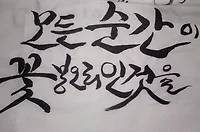 모든 순간이
꽃봉오리인것을